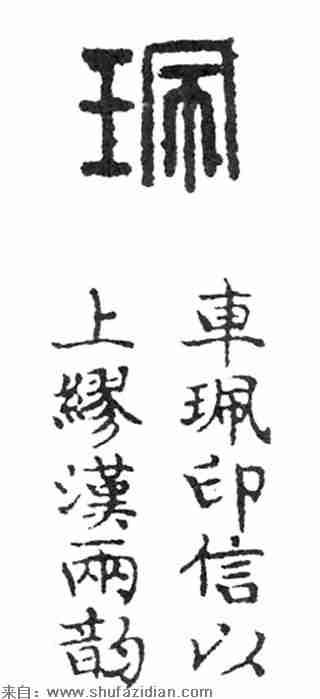 珮
車珮印信以
上繆漢兩韵
来自：www.shufazidian.com